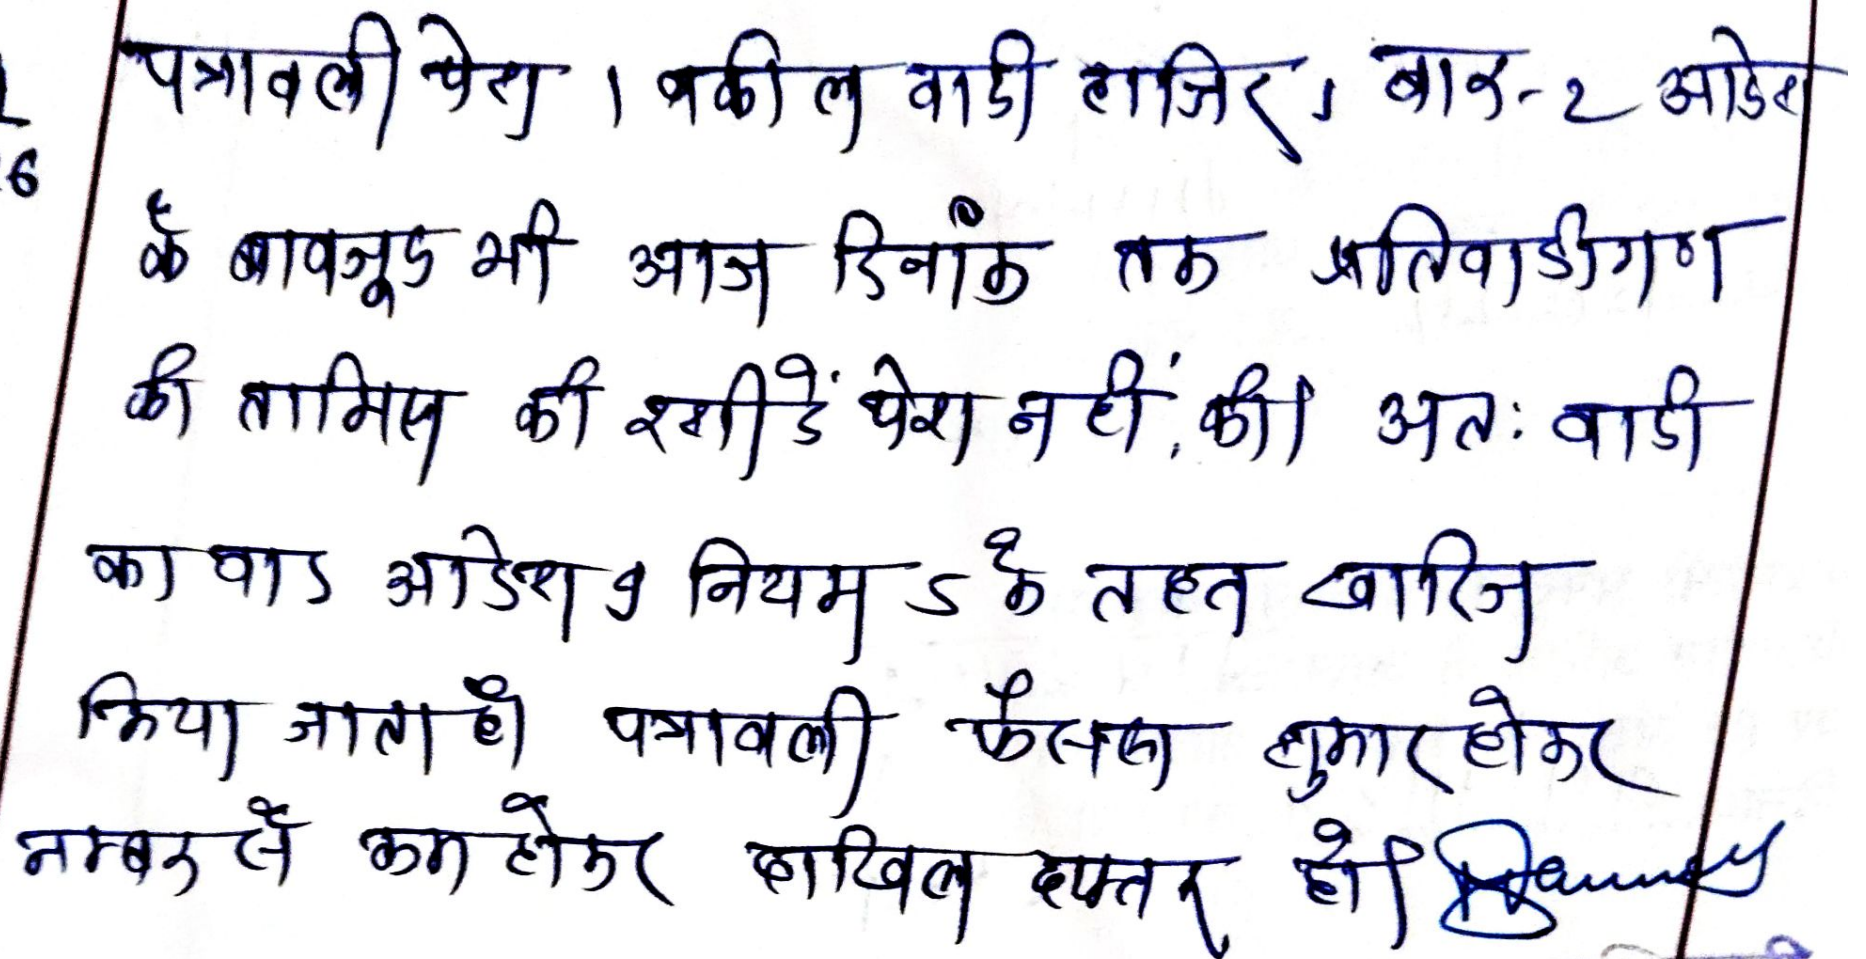 पत्रावली पेश । वकील वादी हाजिर । बार-2 आदेश
के बावजूद भी आज दिनांक तक प्रतिवादीगण
की तामिल की रसीदें पेश नहीं की। अतः वादी
का वाद आदेश 9 नियम 5 के तहत खारिज
किया जाता है। पत्रावली फैसल शुमार होकर
नम्बर से कम होकर दाखिल दफ्तर हो।
6